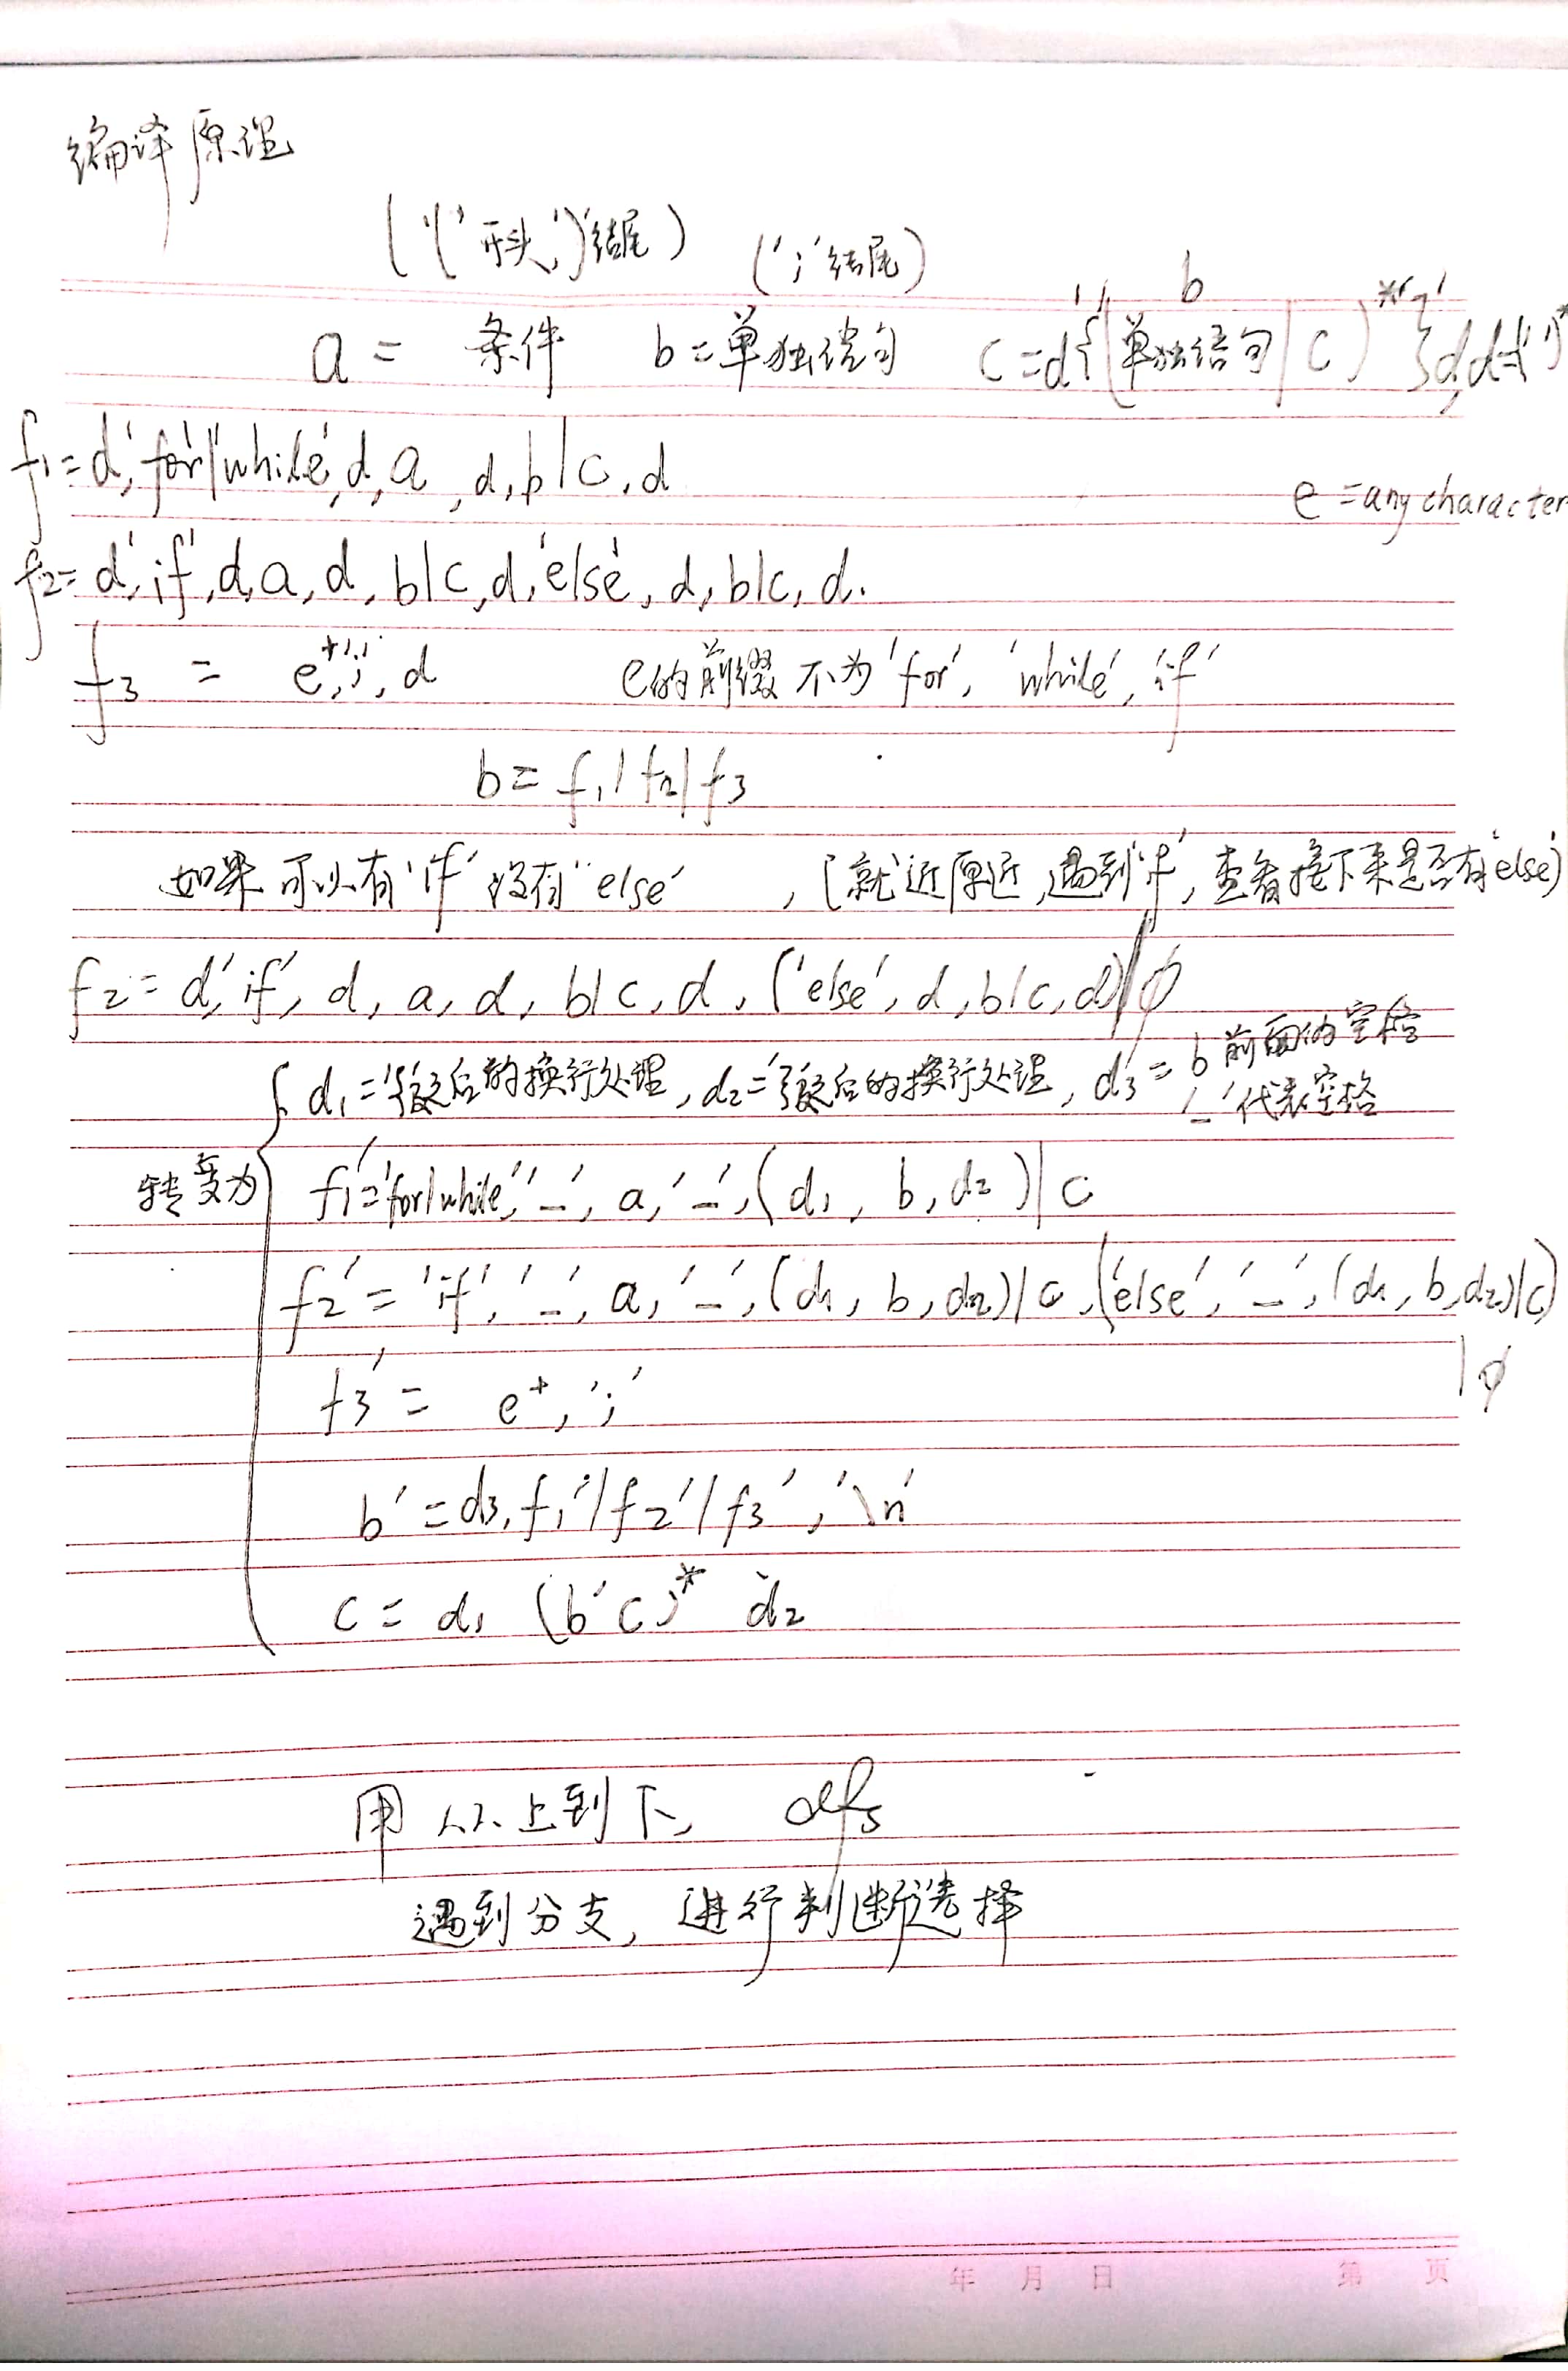 编译原理
('('开头,')'结尾) (';'结尾)
b
a = 条件 b=单独语句 c=d'{'(单独语句|c)*'}'d,d=' '*
f1=d,'for'|'while',d,a,d,b|c,d
e=any character
f2=d,'if',d,a,d,b|c,d,'else',d,b|c,d.
f3 = e+,';',d e的前缀不为'for','while','if'
b=f1|f2|f3
如果可以有'if'没有'else',(就近原近,遇到'if',查看接下来是否有'else')
f2=d,'if',d,a,d,b|c,d,('else',d,b|c,d)|φ
d1='{'后的换行处理,d2='}'后的换行处理,d3=b前面的空格
'_'代表空格
转变为
f1'='for|while','_',a,'_',(d1,b,d2)|c
f2'='if','_',a,'_',(d1,b,d2)|c,('else','_',(d1,b,d2)|c)
|φ
f3'= e+,';'
b'=d3,f1'|f2'|f3','\n'
c=d1 (b'c)* d2
用从上到下, dfs
遇到分支,进行判断选择
年 月 日 第 页